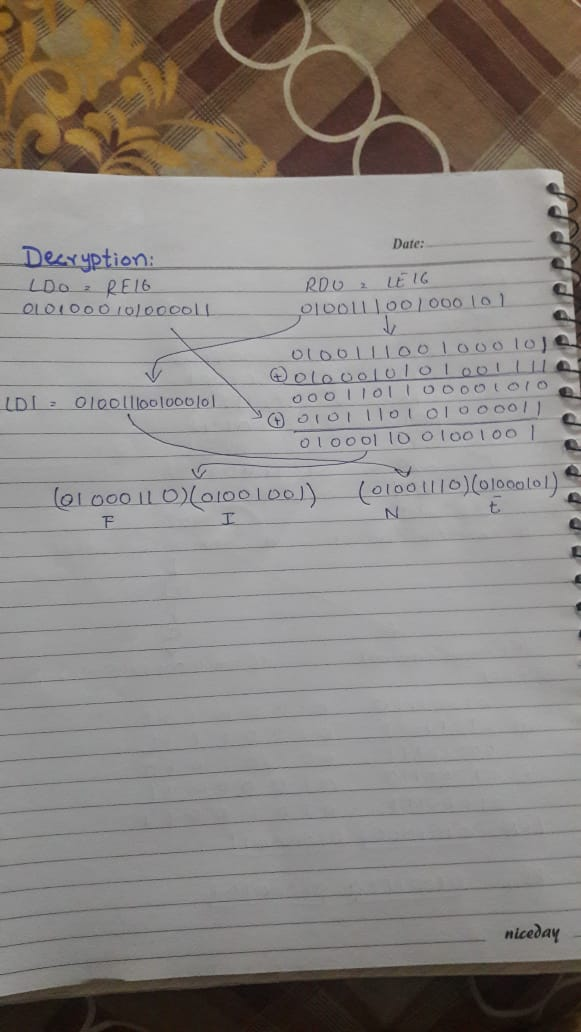 Date:
Decryption:
LD0 = RE16 RD0 = LE16
0101000101000011 0100111001000101
0100111001000101
⊕ 0100001010100 1111
LD1 = 0100111001000101 0001101100001010
⊕ 0101110101000011
0100011001001001
(01000110)(01001001) (01001110)(01000101)
F I N E
niceday